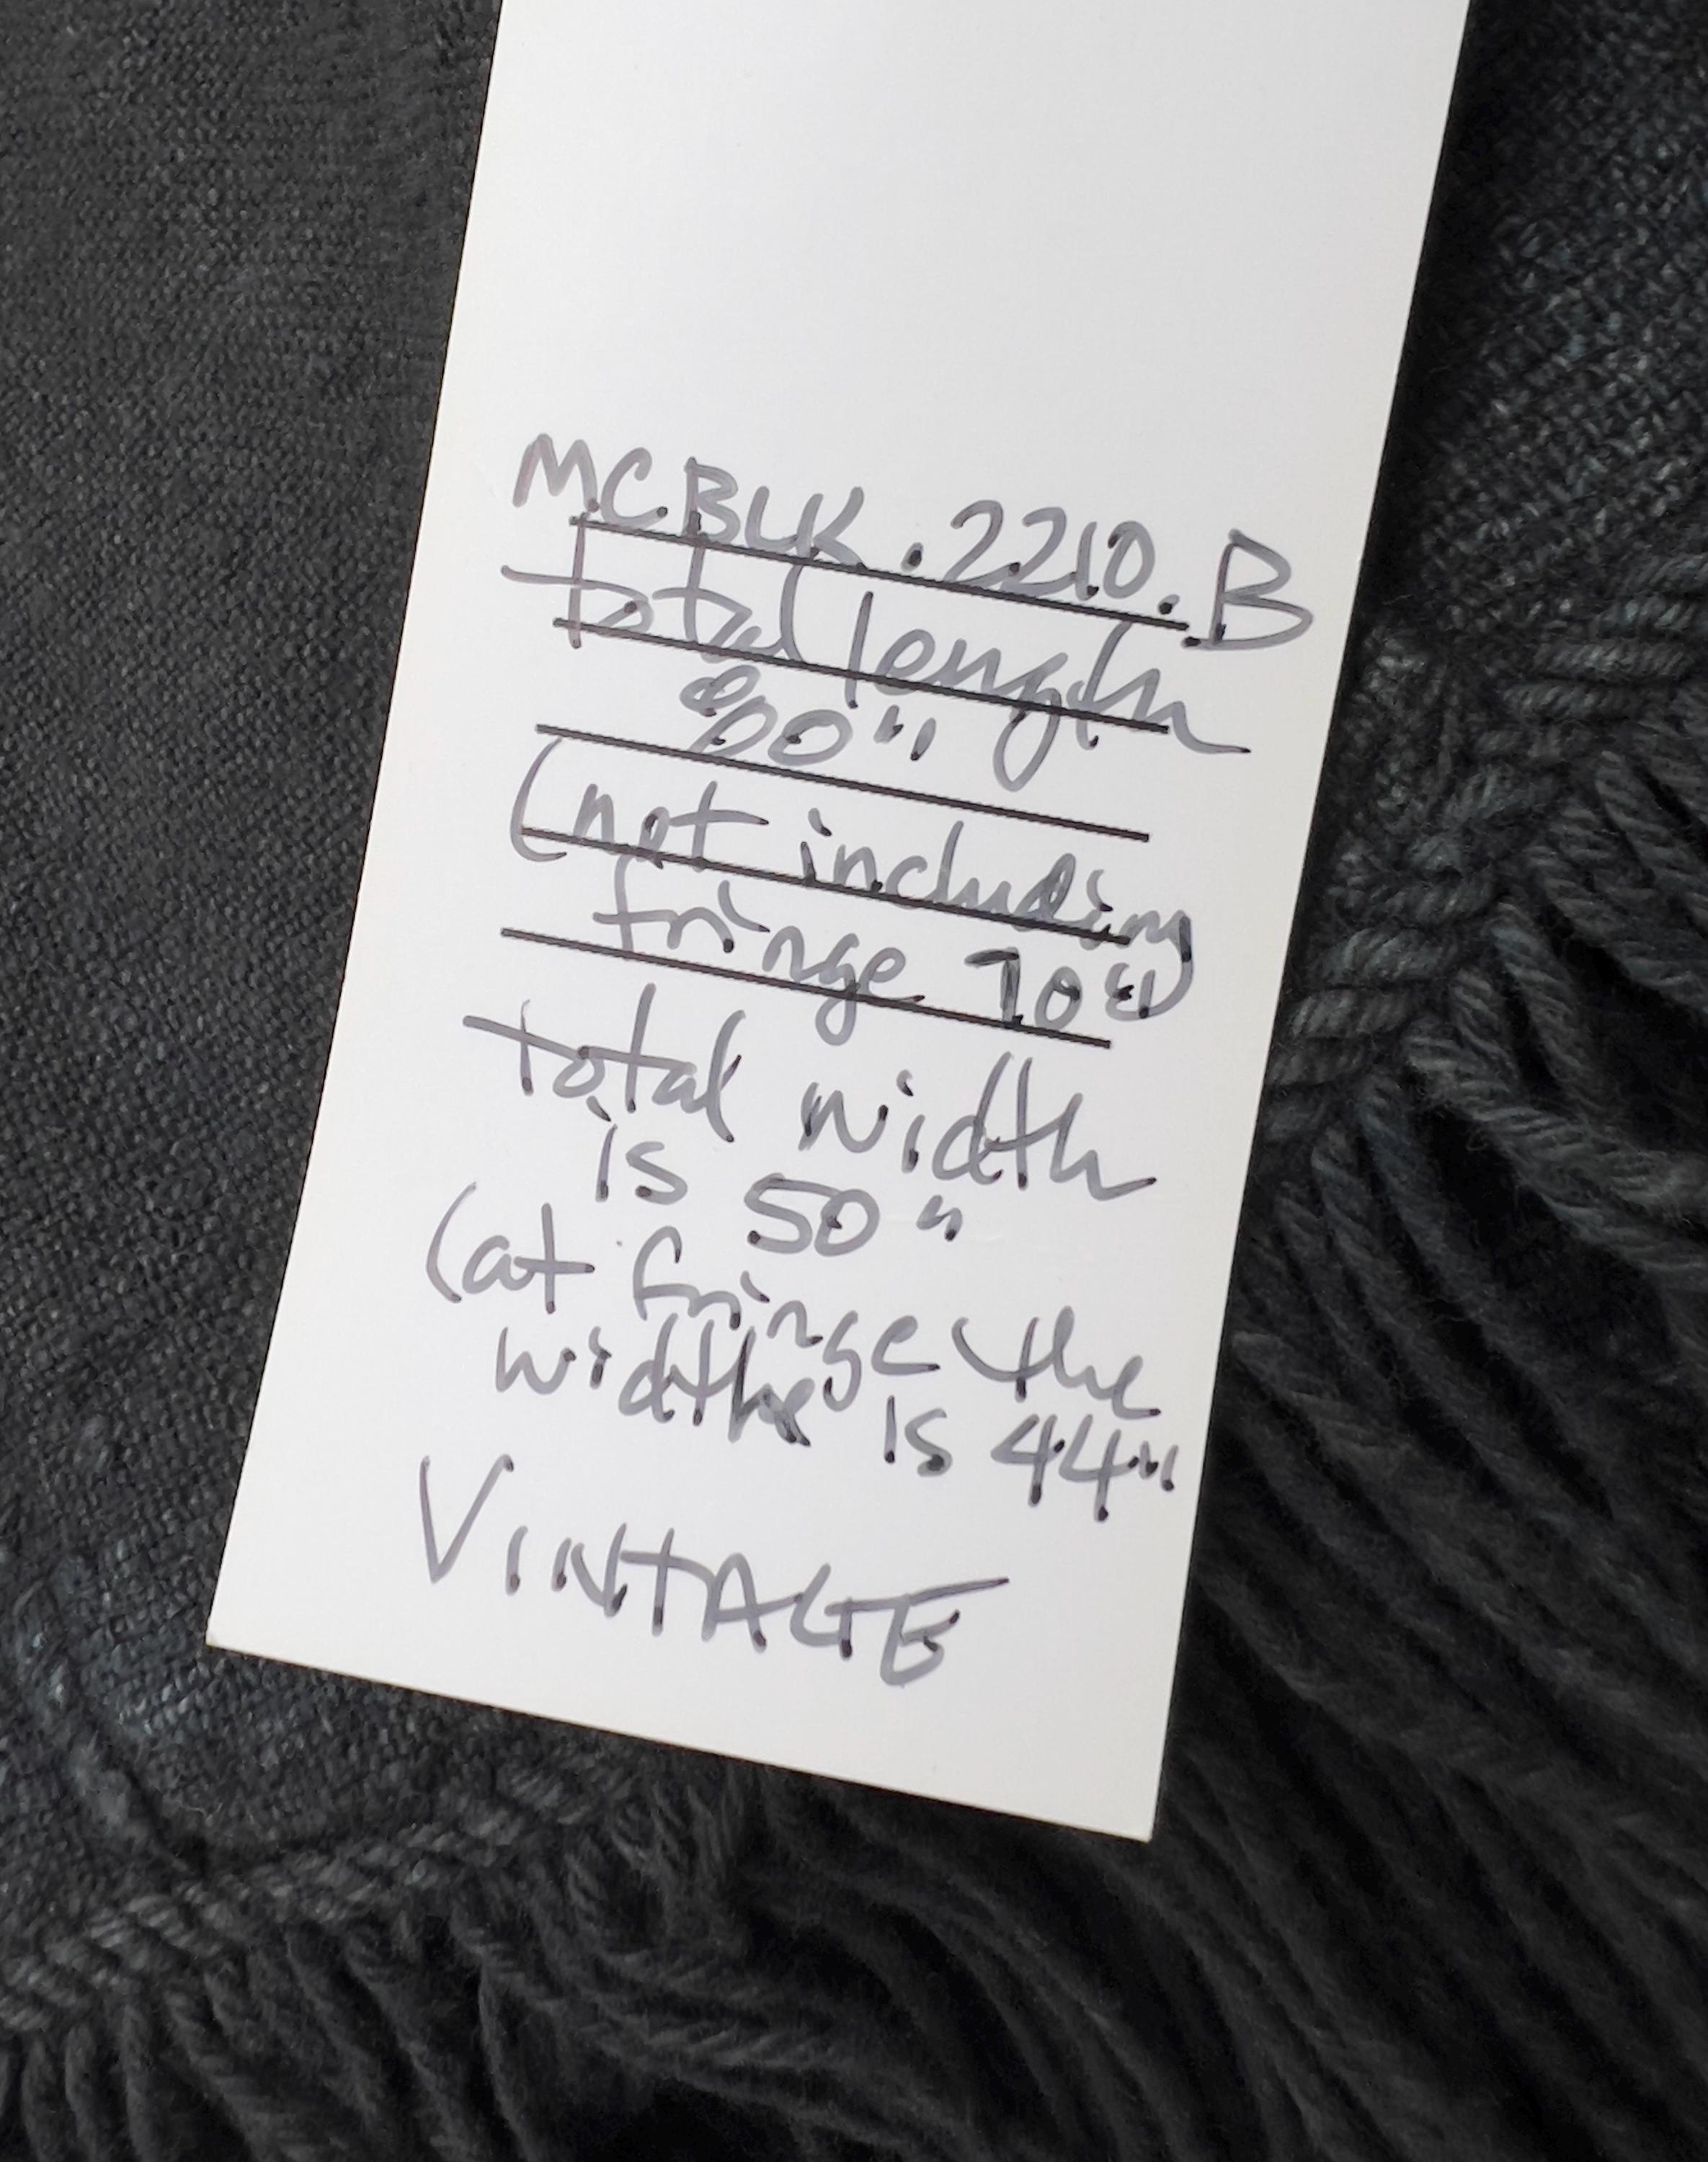 M.C.BLK.2210.B
total length
80"
(not including
fringe 70")
total width
is 50"
(at fringe the
width is 44"
VINTAGE